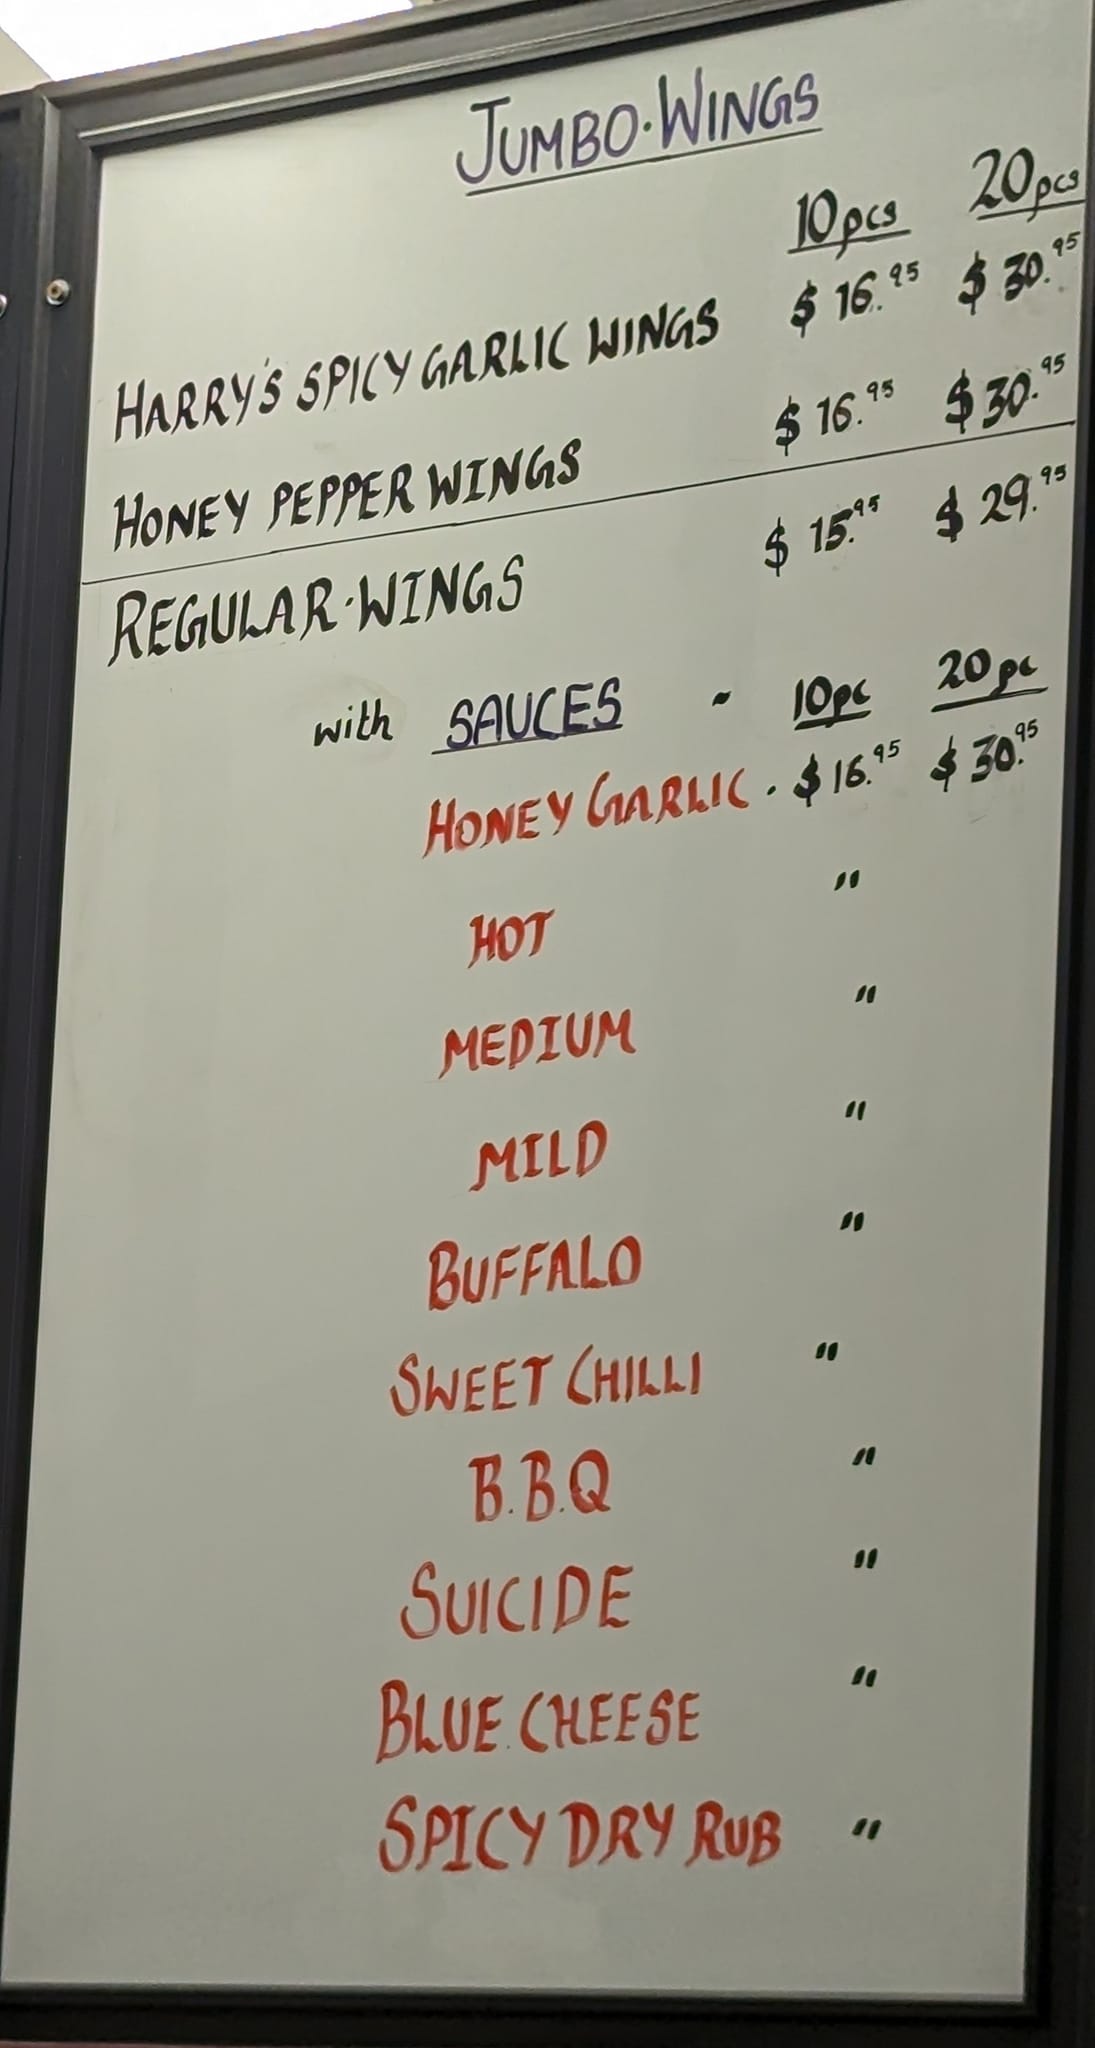 JUMBO·WINGS
10pcs 20pcs
HARRY'S SPICY GARLIC WINGS $16.95 $30.95
HONEY PEPPER WINGS $16.95 $30.95
REGULAR·WINGS $15.95 $29.95
with SAUCES - 10pc 20pc
HONEY GARLIC · $16.95 $30.95
HOT "
MEDIUM "
MILD "
BUFFALO "
SWEET CHILLI "
B.B.Q "
SUICIDE "
BLUE CHEESE "
SPICY DRY RUB "